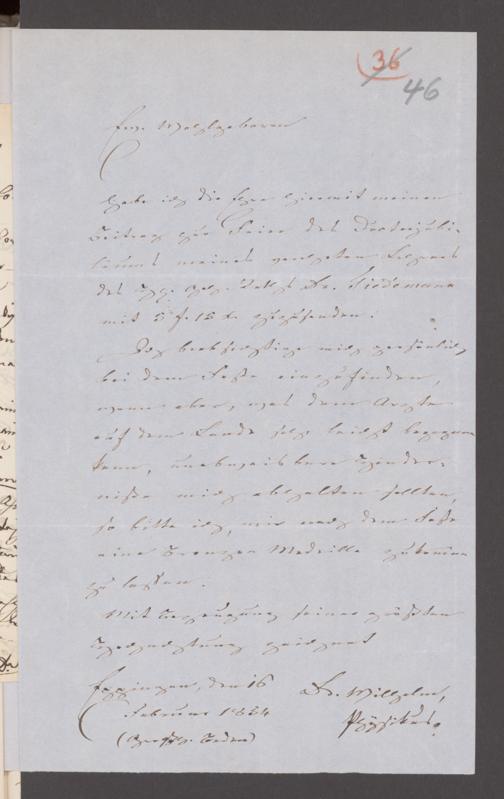 36
46
Euer Wohlgeboren
habe ich die Ehre hiermit meinen
Beitrag zur Feier des Doctorjubi-
läums meines verehrten Lehrers
des Hr. Geh. Raths Dr. Tiedemann
mit 5 f. 15 kr zuzusenden.
Ich beabsichtige mich persönlich
bei dem Feste einzufinden,
wenn aber, was dem Arzte
auf dem Lande sehr leicht begegnen
kann, unabweisbare Hinder-
nisse mich abhalten sollten,
so bitte ich, mir nach dem Feste
eine Bronzen Medaille zukommen
zu lassen.
Mit Bezeugung seiner größten
Hochachtung zeichnet
Eppingen, den 16
Dr. Wilhelmi,
Februar 1854
Physikus.
(Großh. Baden)